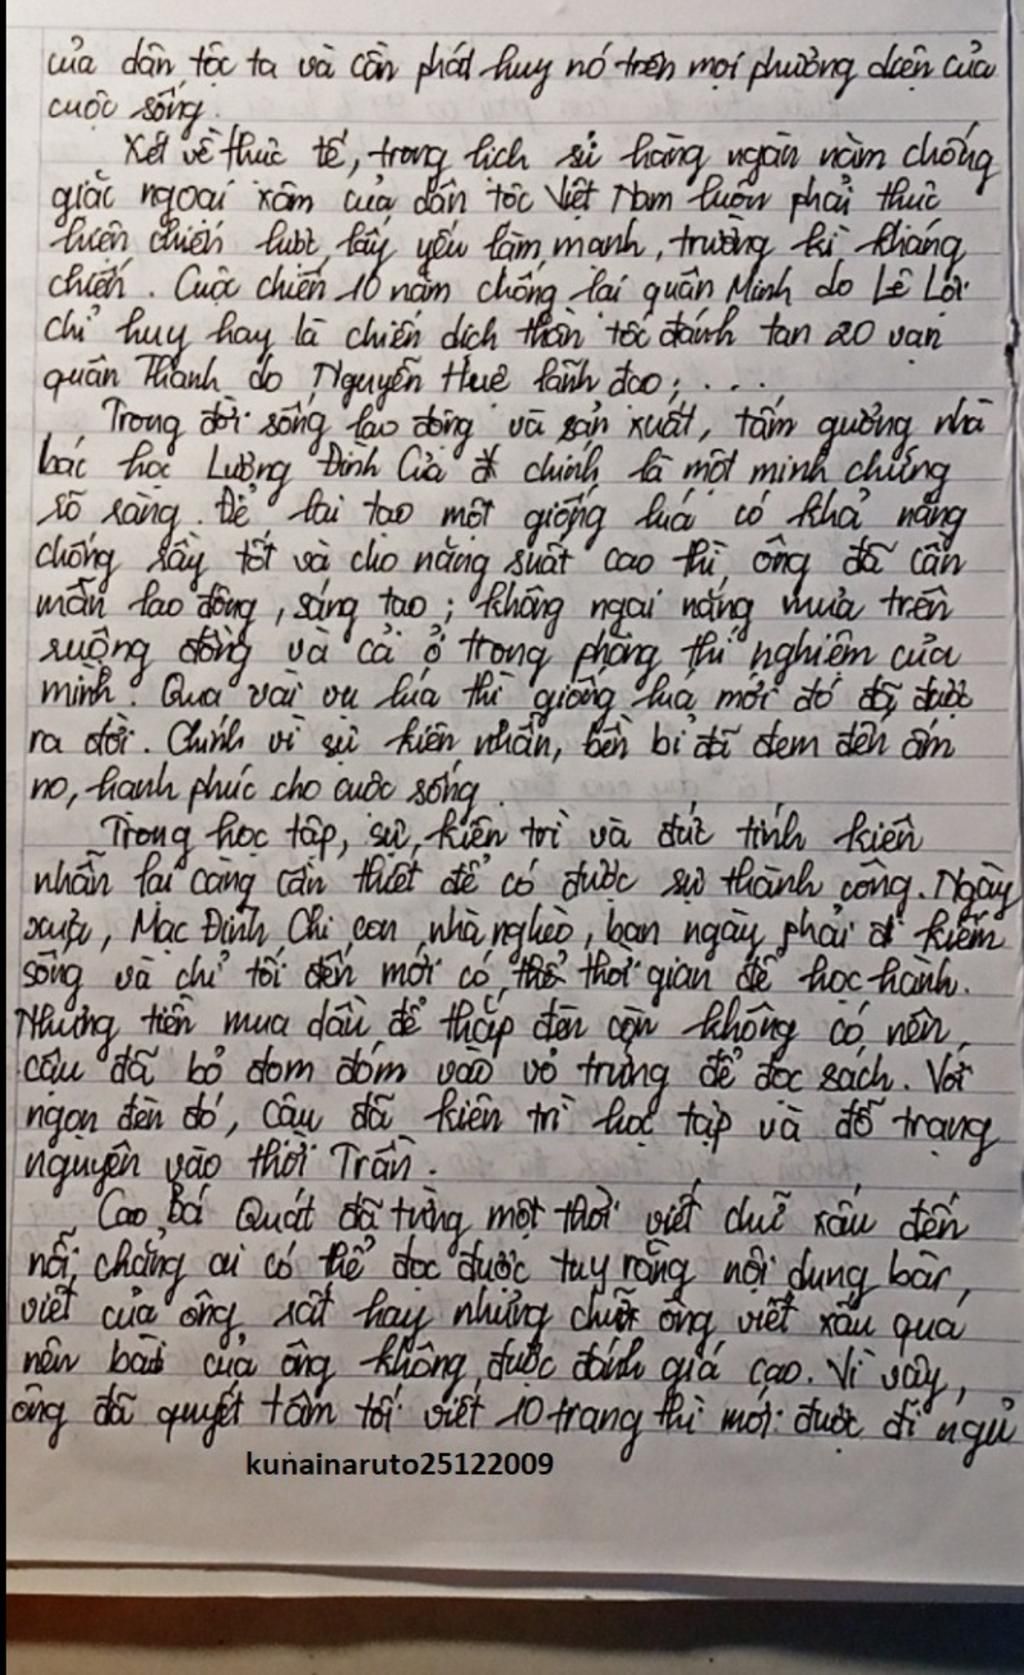 của dân tộc ta và cần phát huy nó trên mọi phương diện của
cuộc sống.
Xét về thực tế, trong lịch sử hàng ngàn năm chống
giặc ngoại xâm của dân tộc Việt Nam luôn phải thực
hiện chiến lược lấy yếu làm mạnh, trường kì kháng
chiến. Cuộc chiến 10 năm chống lại quân Minh do Lê Lợi
chỉ huy hay là chiến dịch thần tốc đánh tan 20 vạn
quân Thanh do Nguyễn Huệ lãnh đạo; ...
Trong đời sống lao động và sản xuất, tấm gương nhà
bác học Lương Đình Của chính là một minh chứng
rõ ràng. Để lai tạo một giống lúa có khả năng
chống rầy tốt và cho năng suất cao thì ông đã cần
mẫn lao động, sáng tạo; không ngại nắng mưa trên
ruộng đồng và cả ở trong phòng thí nghiệm của
mình. Qua vài vụ lúa thì giống lúa mới đó đã được
ra đời. Chính vì sự kiên nhẫn, bền bỉ đã đem đến ấm
no, hạnh phúc cho cuộc sống.
Trong học tập, sự kiên trì và đức tính kiên
nhẫn lại càng cần thiết để có được sự thành công. Ngày
xưa, Mạc Đĩnh Chi con nhà nghèo, ban ngày phải đi kiếm
sống và chỉ tối đến mới có thể thời gian để học hành.
Nhưng tiền mua dầu để thắp đèn còn không có nên
cậu đã bỏ đom đóm vào vỏ trứng để đọc sách. Với
ngọn đèn đó, cậu đã kiên trì học tập và đỗ trạng
nguyên vào thời Trần.
Cao Bá Quát đã từng một thời viết chữ xấu đến
nỗi chẳng ai có thể đọc được tuy rằng nội dung bài
viết của ông rất hay nhưng chữ ông viết xấu quá
nên bài của ông không được đánh giá cao. Vì vậy,
ông đã quyết tâm tối viết 10 trang thì mới được đi ngủ
kunainaruto25122009